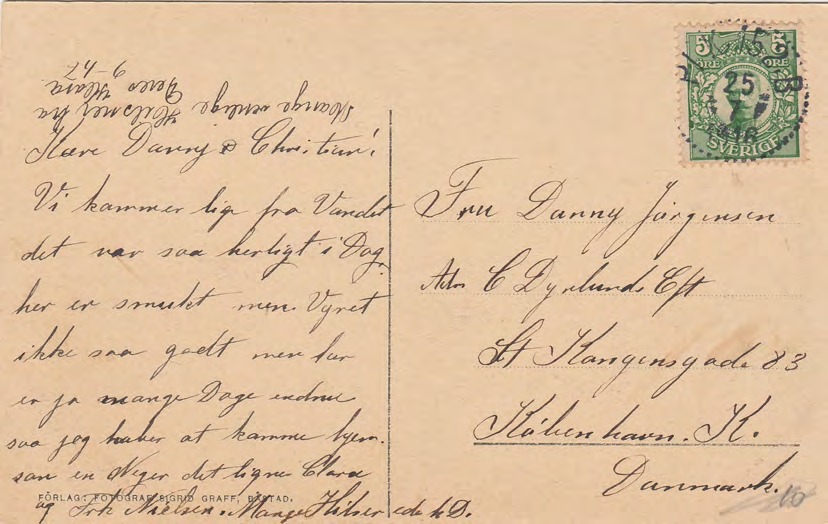 Mange venlige Hilsner fra
Deres Klara
Kære Danny & Christian!
Vi kammer lige fra Vandet
det var saa herligt i Dag,
her er smukt men Vejret
ikke saa godt men der
er jo mange Dage endnu
saa jeg haber at komme hjem.
som en Neger det ligne Clara
og Frk Nielsen. Mange Hilsner
FÖRLAG: FOTOGRAF SIGRID GRAFF, BÅSTAD.
5 5
ÖRE ÖRE
SVERIGE
PLK 153 B
25
7
16
Fru Danny Jörgensen
Adr C Dyrlunds Eft
St Kongensgade 83
København. K.
Danmark.
10